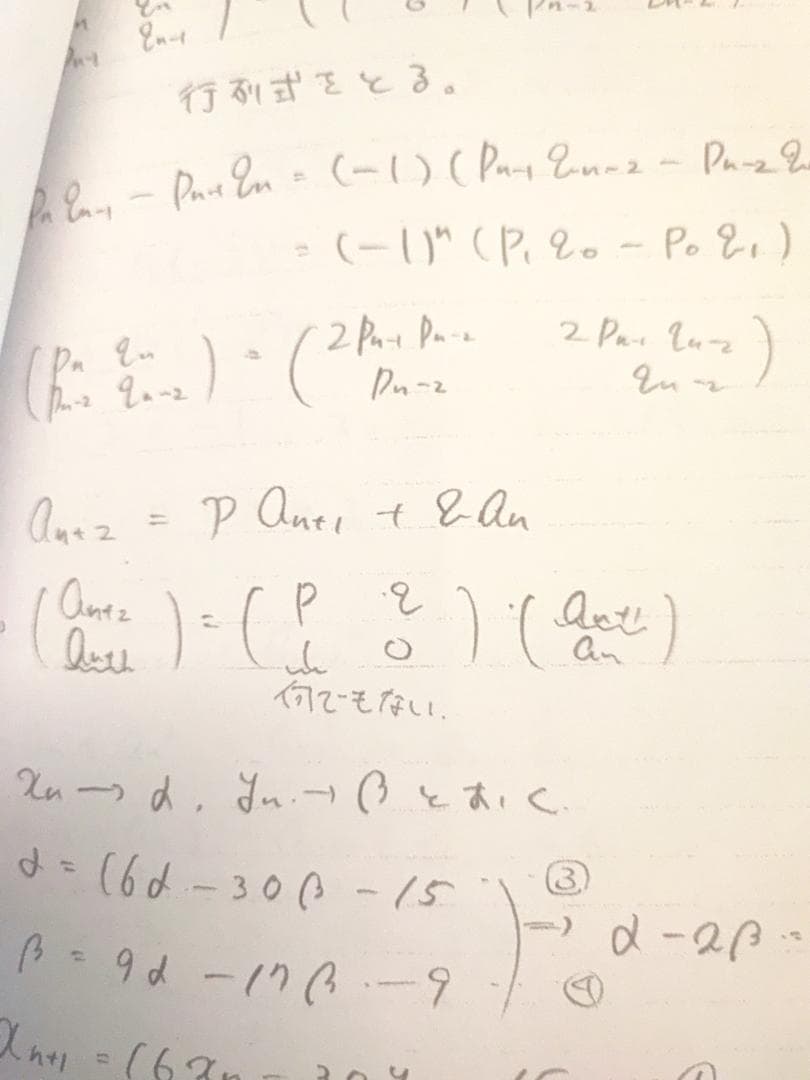 q_{n-1}
行列式をとる。
p_n q_{n-1} - p_{n-1} q_n = (-1) (p_{n-1} q_{n-2} - p_{n-2} q
= (-1)^n (p_1 q_0 - p_0 q_1)
(p_n q_n = (2p_{n-1} p_{n-2} 2p_{n-1} q_{n-2})
p_{n-2} q_{n-2}) p_{n-2} q_{n-2}
a_{n+2} = p a_{n+1} + q a_n
(a_{n+2} = (p q) · (a_{n+1})
a_{n+1}) 1 0 a_n
何でもない.
x_n → α, y_n → β とおく.
α = 16α - 30β - 15 ③
⇒ α - 2β =
β = 9α - 17β - 9 ④
x_{n+1} = 16x_n - 30y 15 ①